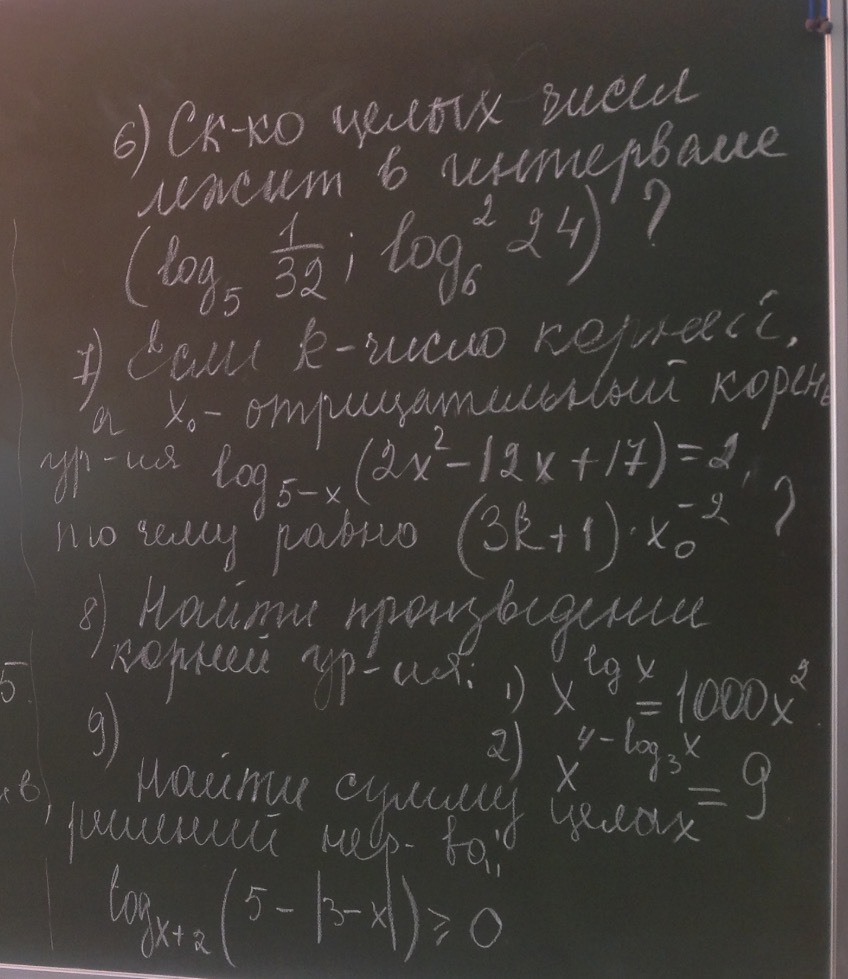 6) Ск-ко целых чисел
лежит в интервале
(log₅ 1/32; log₆² 24) ?
7) Если k-число корней,
а x₀ - отрицательный корень
ур-ия log₅₋ₓ(2x²-12x+17)=2,
то чему равно (3k+1)·x₀⁻² ?
8) Найти произведение
корней ур-ия: 1) x^(lg x) = 1000x²
2) x^(4-log₃x) = 9
9)
Найти сумму целых
решений нер-ва:
logₓ₊₂(5-|3-x|) ⩾ 0
5